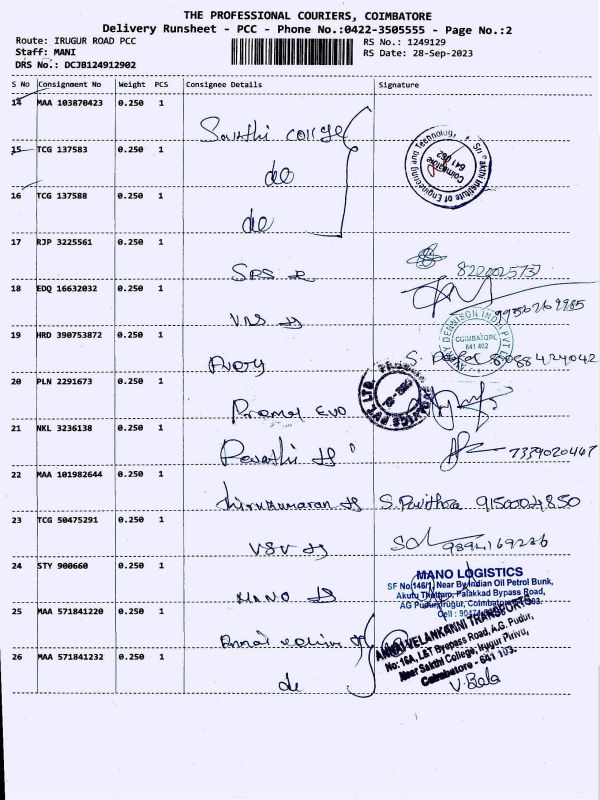 THE PROFESSIONAL COURIERS, COIMBATORE
Delivery Runsheet - PCC - Phone No.:0422-3505555 - Page No.:2
Route: IRUGUR ROAD PCC
RS No.: 1249129
Staff: MANI
RS Date: 28-Sep-2023
DRS No.: DCJB124912902
S No Consignment No Weight PCS Consignee Details Signature
14 MAA 103870423 0.250 1
Sakthi College
15 TCG 137583 0.250 1
do
Sri Sakthi Institute of Engineering and Technology
Coimbatore
641 062
16 TCG 137588 0.250 1
do
17 RJP 3225561 0.250 1
SRS
18 EDQ 16632032 0.250 1
VRS
19 HRD 390753872 0.250 1
Avery
AVERY DENNISON INDIA PVT LTD
COIMBATORE
641 402
20 PLN 2291673 0.250 1
Promot EVO
21 NKL 3236138 0.250 1
Revathi
7339020467
22 MAA 101982644 0.250 1
Thirukumaran S. Pavithra 9150024850
23 TCG 50475291 0.250 1
VSV
24 STY 900660 0.250 1
MANO
MANO LOGISTICS
SF No:146/1, Near By Indian Oil Petrol Bunk,
Akutu Thottam, Palakkad Bypass Road,
AG Pudur, Irugur, Coimbatore
Cell :
25 MAA 571841220 0.250 1
Annai
ANNAI VELANKANNI TRANSPORTS
No: 16A, L&T Byepass Road, A.G. Pudur,
Near Sakthi College, Irugur Pirivu,
Coimbatore - 641 103.
26 MAA 571841232 0.250 1
do
V. Bala